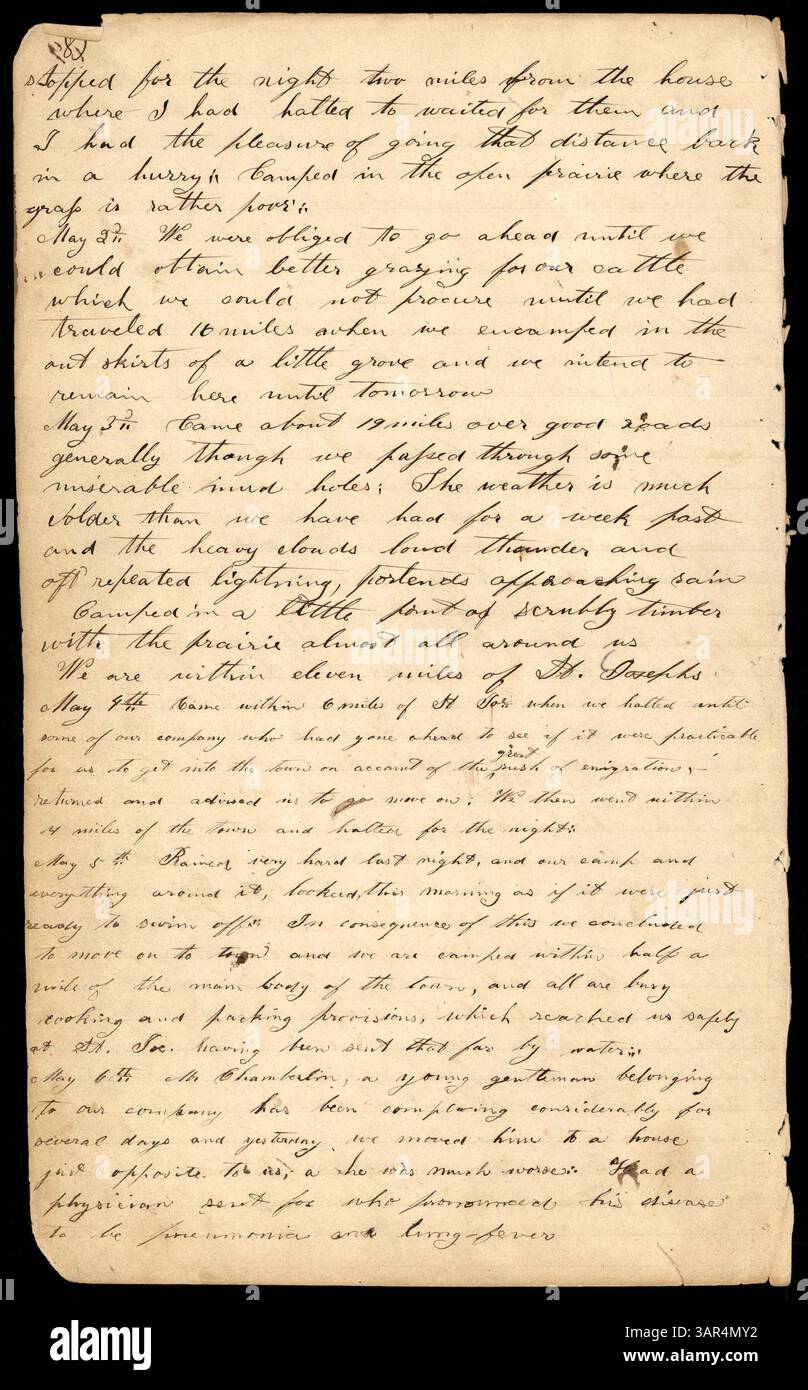 82
stopped for the night two miles from the house
where I had halted to waited for them and
I had the pleasure of going that distance back
in a hurry;; Camped in the open prairie where the
grass is rather poor;;
May 2d We were obliged to go ahead until we
could obtain better grazing for our cattle
which we could not procure until we had
traveled 16 miles when we encamped in the
out skirts of a little grove and we intend to
remain here until tomorrow
May 3d Came about 19 miles over good roads
generally though we passed through some
miserable mud holes; The weather is much
colder than we have had for a week past
and the heavy clouds loud thunder and
oft repeated lightning, portends approaching rain
Camped in a little point of scrubby timber
with the prairie almost all around us
We are within eleven miles of St. Josephs
May 4th Came within 6 miles of St Joe when we halted until
some of our company who had gone ahead to see if it were practicable
for us to get into the town on account of the great rush of emigration,
returned and advised us to go move on. We then went within
4 miles of the town and halted for the night;;
May 5th Rained very hard last night, and our camp and
everything around it, looked, this morning as if it were just
ready to swim off;; In consequence of this we concluded
to move on to town and we are camped within half a
mile of the main body of the town, and all are busy
cooking and packing provisions, which reached us safely
at St. Joe. having been sent that far by water;;
May 6th Mr Chamberlin, a young gentleman belonging
to our company has been complaing considerably for
several days and yesterday we moved him to a house
just opposite to us, a he was much worse;; Had a
physician sent for who pronounced his disease
to be pneumonia and lung-fever
alamy
a
3AR4MY2